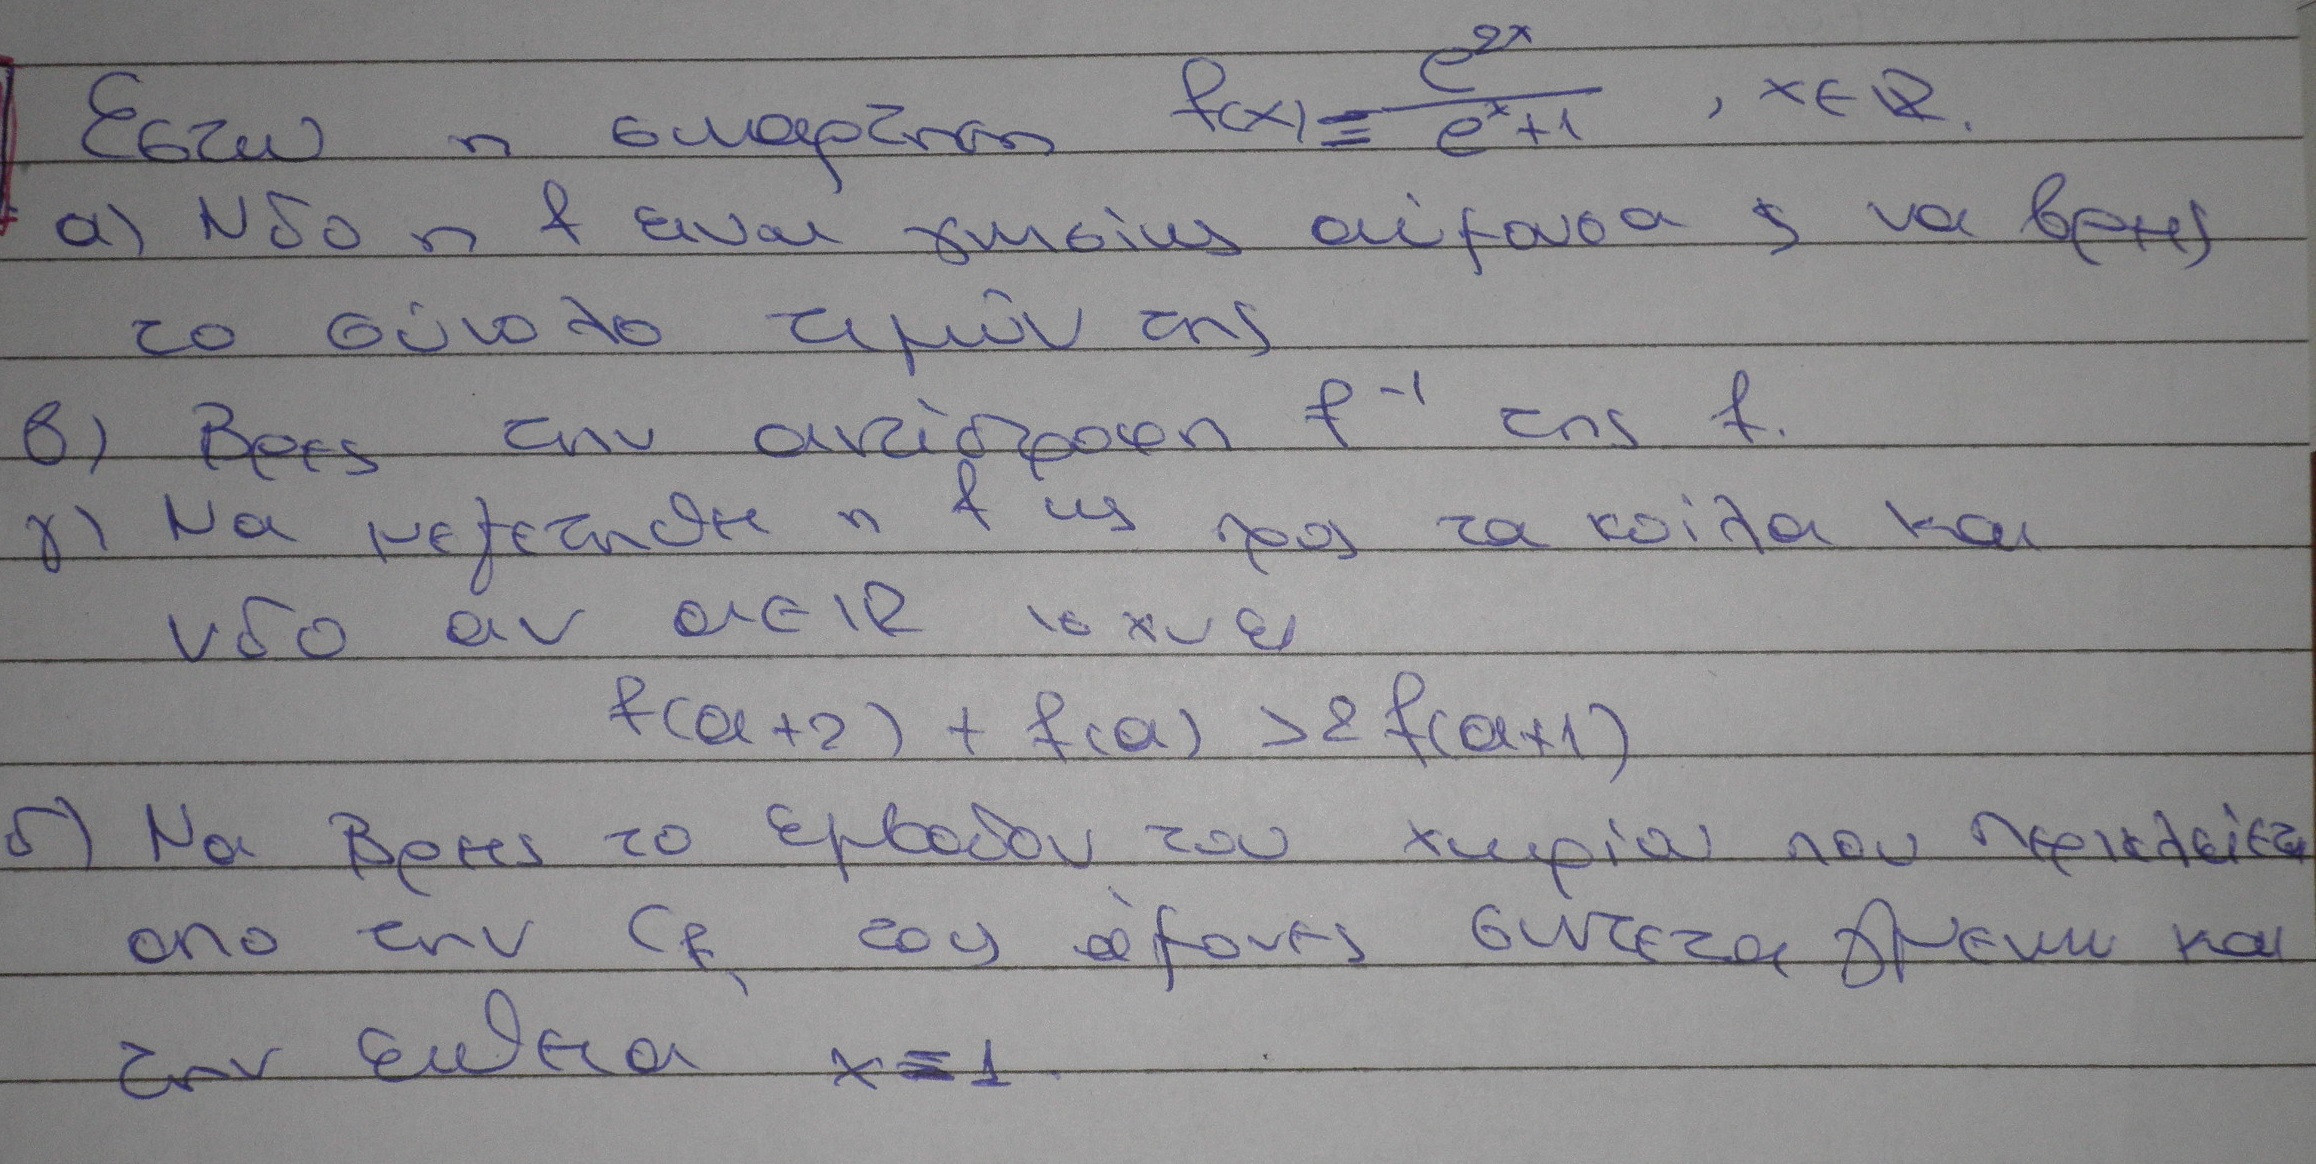 Εστω η συναρτηση f(x) = e^2x / e^x+1 , x∈ℝ.
α) Νδο η f ειναι γνησίως αύξουσα ς να βρεις
το σύνολο τιμών της
β) Βρες την αντίστροφη f^-1 της f.
γ) Να μελετηθει η f ως προς τα κοίλα και
νδο αν α∈ℝ ισχυει
f(α+2) + f(α) > 2 f(α+1)
δ) Να βρεις το εμβαδον του χωρίου που περικλείεται
απο την Cf, τους άξονες συντεταγμενων και
την ευθεια x=1.